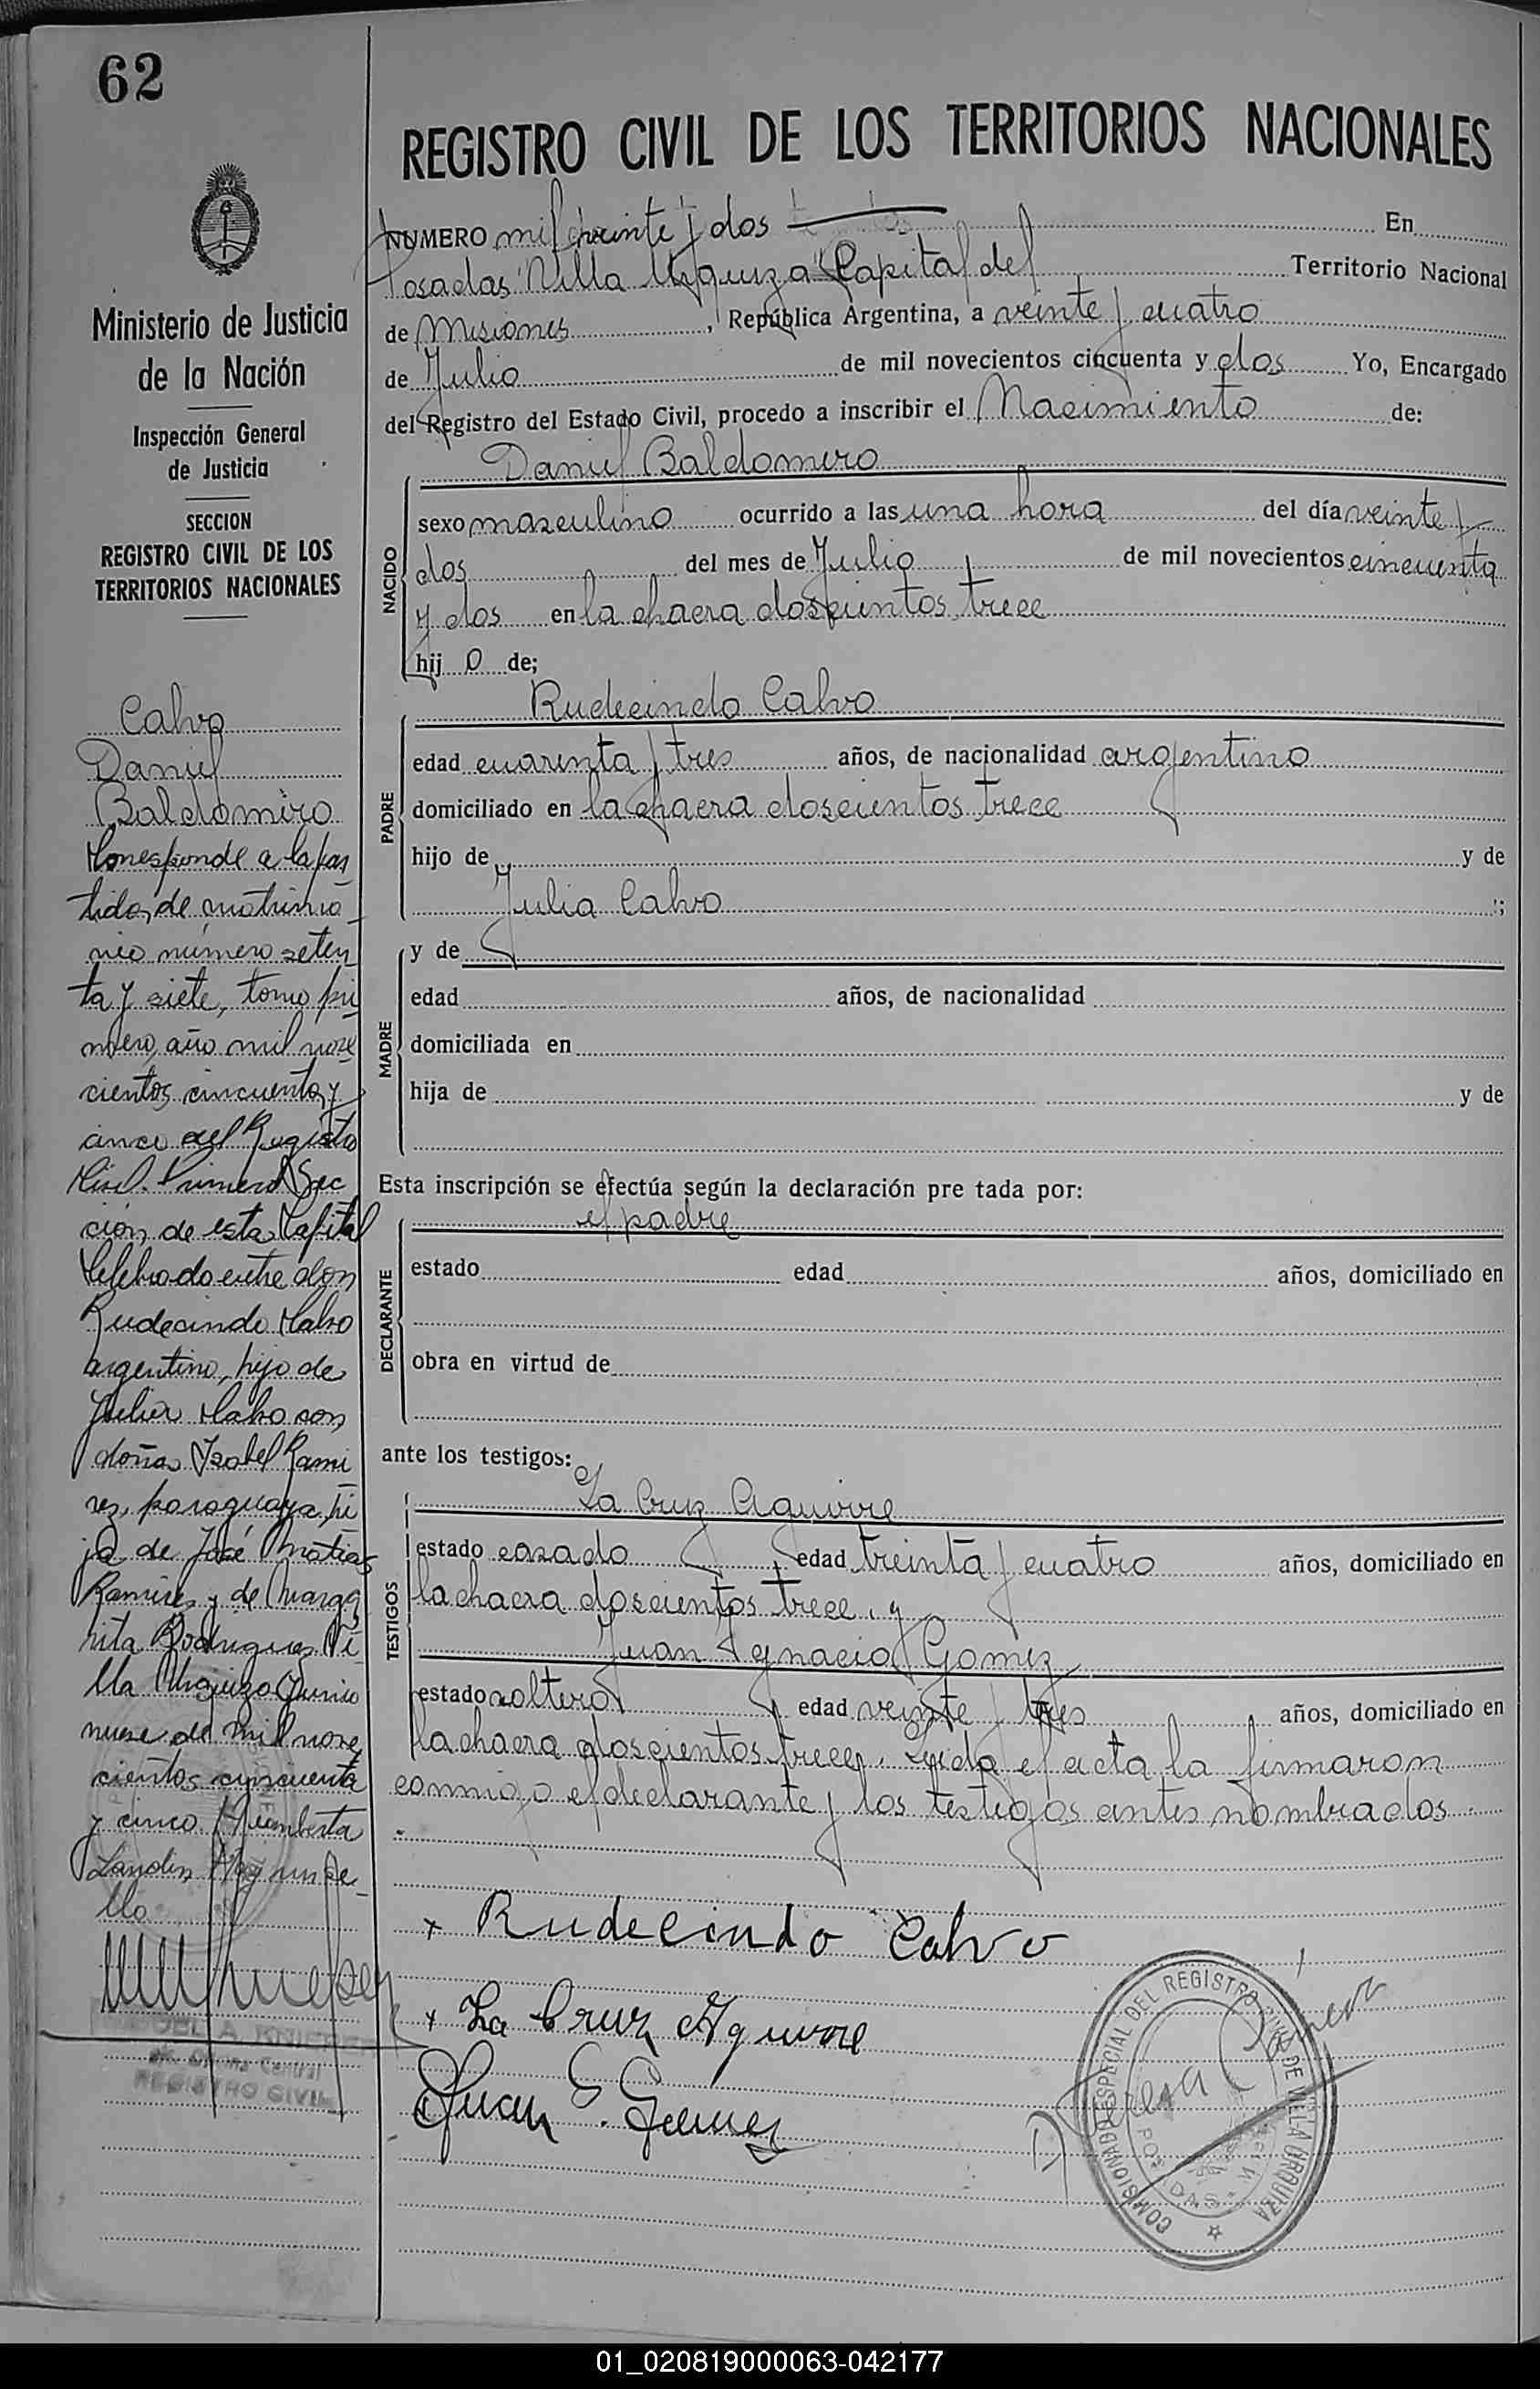 62
Ministerio de Justicia
de la Nación
Inspección General
de Justicia
SECCION
REGISTRO CIVIL DE LOS
TERRITORIOS NACIONALES
Calvo
Daniel
Baldomero
Corresponde a la par
tida de matrimo
nio número seten
ta y siete, tomo pri
mero, año mil nove
cientos cincuenta y
cinco del Registro
Civil. Primera Sec
ción de esta Capital
Celebrado entre don
Rudecindo Calvo
argentino, hijo de
Julia Calvo con
doña Isabel Rami
rez, paraguaya, hi
ja de José Matias
Ramirez y de Marga
rita Rodriguez Vi
lla Urquiza Junio
nueve de mil nove
cientos cincuenta
y cinco. Humberta
Hay un se
llo.
Oficina Central
REGISTRO CIVIL
REGISTRO CIVIL DE LOS TERRITORIOS NACIONALES
NUMERO mil veinte y dos En
Posadas "Villa Urquiza" Capital del Territorio Nacional
de Misiones, República Argentina, a veinte y cuatro
de Julio de mil novecientos cincuenta y dos Yo, Encargado
del Registro del Estado Civil, procedo a inscribir el Nacimiento de:
Daniel Baldomero
NACIDO
sexo masculino ocurrido a las una hora del día veinte y
dos del mes de Julio de mil novecientos cincuenta
y dos en la chacra doscientos trece
hij o de;
Rudecindo Calvo
PADRE
edad cuarenta y tres años, de nacionalidad argentino
domiciliado en la chacra doscientos trece
hijo de y de
Julia Calvo ;
MADRE
y de
edad años, de nacionalidad
domiciliada en
hija de y de
Esta inscripción se efectúa según la declaración pre tada por:
el padre
DECLARANTE
estado edad años, domiciliado en
obra en virtud de
ante los testigos:
La Cruz Aguirre
TESTIGOS
estado casado edad treinta y cuatro años, domiciliado en
la chacra doscientos trece. y
Juan Ygnacio Gomez
estado soltero edad veinte y tres años, domiciliado en
la chacra doscientos trece. Leida el acta la firmaron
conmigo el declarante y los testigos antes nombrados.
x Rudecindo Calvo
x La Cruz Aguirre
Juan Y. Gomez
COMISIONADO ESPECIAL DEL REGISTRO CIVIL DE VILLA URQUIZA
POSADAS
01_020819000063-042177